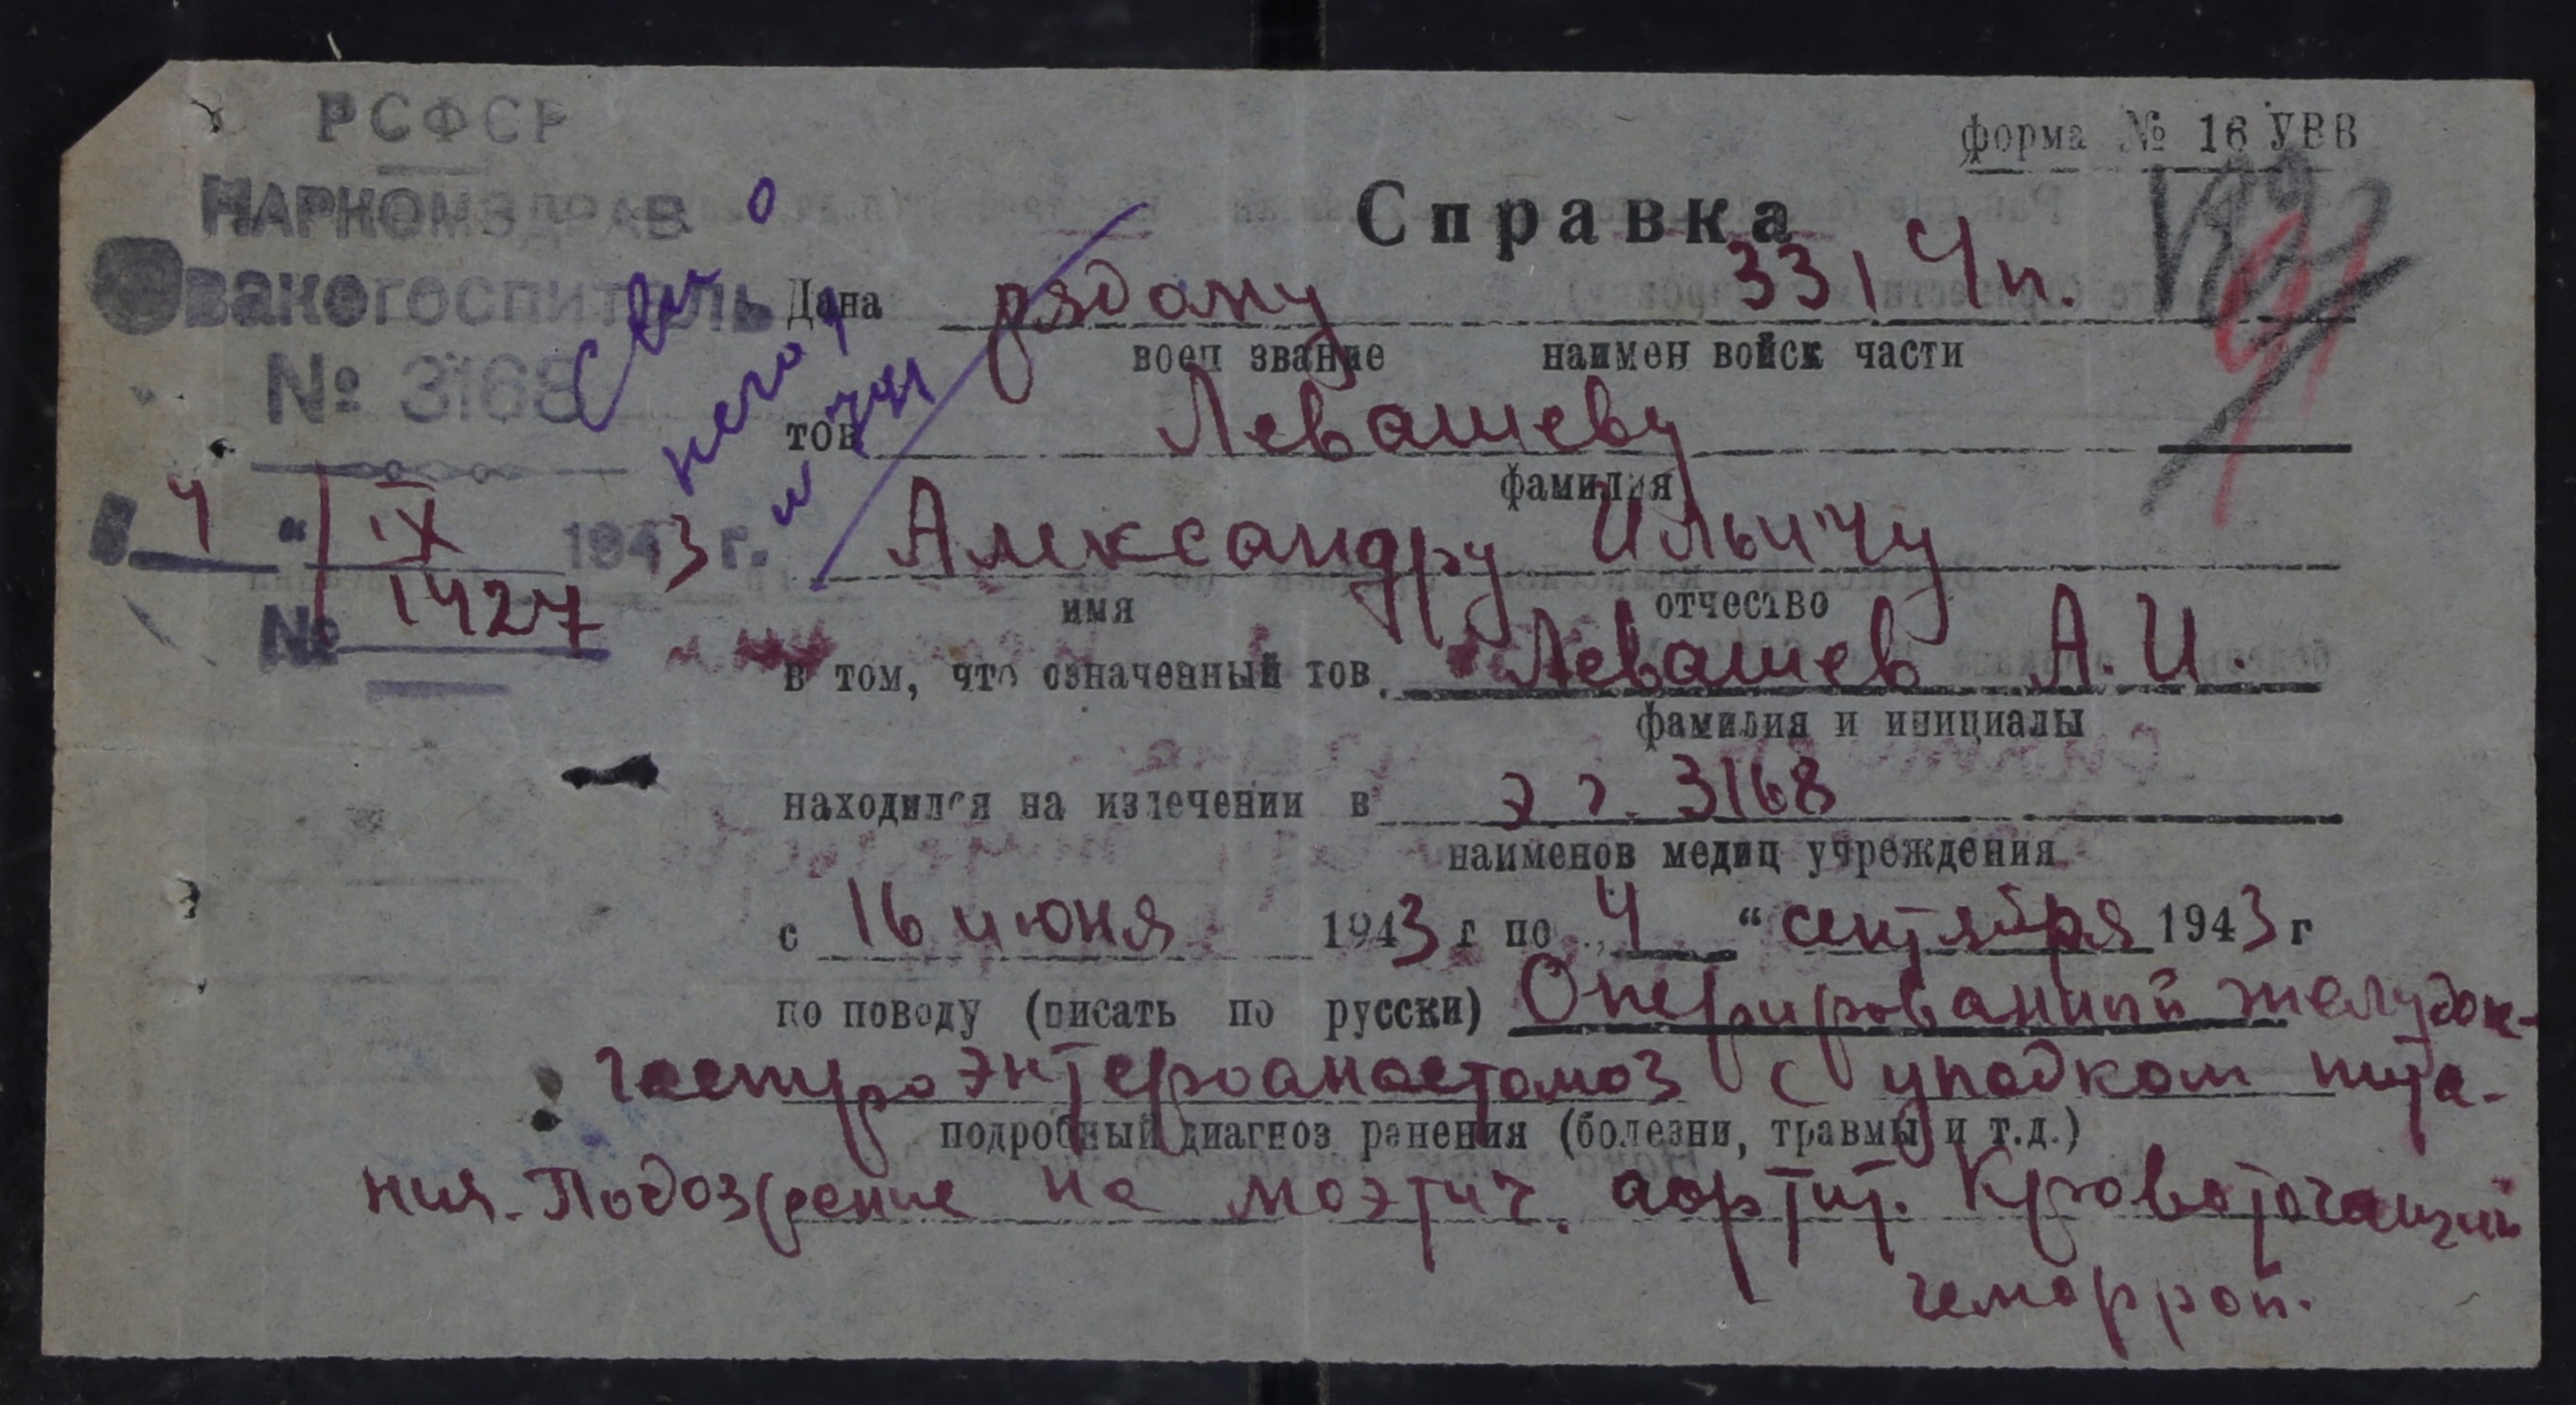 РСФСР
НАРКОМЗДРАВ
Эвакогоспиталь
№ 3168
4 " IX 1943 г.
№ 1427
форма № 16 УВВ
Справка
Дана рядому 331 Чп.
воен звание наимен войск части
тов Левашеву
фамилия
Александру Ильичу
имя отчество
в том, что означенный тов. Левашев А. И.
фамилия и инициалы
находился на излечении в э г. 3168
наименов медиц учреждения
с 16 июня 1943 г по „4 " сентября 1943 г
по поводу (писать по русски) Оперированный желудок-
гастроэнтероанастомоз с упадком пита-
подробный диагноз ранения (болезни, травмы и т.д.)
ния. Подозрение на аортит. Кровоточащий
геморрой.